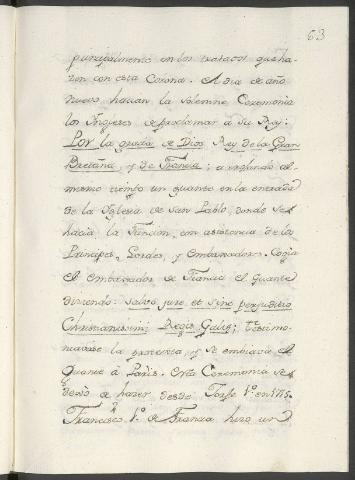 63
principalmente en los tratados que ha-
zen con esta Corona. El dia de año
nuevo hacian la solemne Ceremonia
los Yngleses de proclamar a su Rey:
Por la gracia de Dios Rey de la Gran
Bretaña, y de Francia; arrojando al
mismo tiempo un guante en la entrada
de la Yglesia de San Pablo, donde se
hacia la Funcion, con asistencia de los
Principes, Lordes, y Embaxadores. Cogia
el embaxador de Francia el Guante
diciendo: salvo jure et sine perjuditio
Christianissimi Regis Galiæ;
la protexta, y se embiava el
Guante à Paris. Esta Ceremonia se
dexò de hazer desde Jorge 1.º en
Francisco 1.º de Francia hizo un